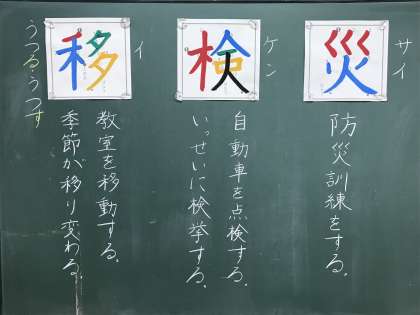 災
サイ
防災訓練をする。
検
ケン
自動車を点検する。
いっせいに検挙する。
移
イ
うつる・うつす
教室を移動する。
季節が移り変わる。